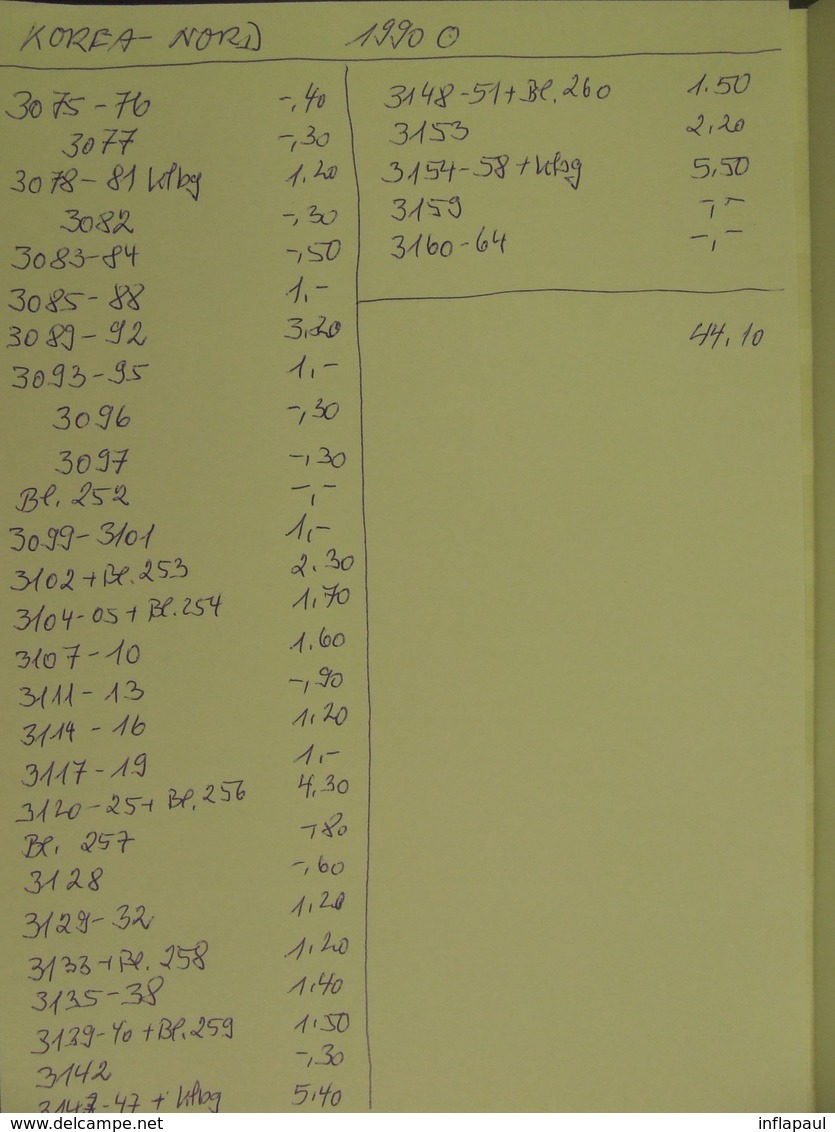 KOREA-NORD 1990 O
3075-76 -,40
3077 -,30
3078-81 Klbg 1.20
3082 -,30
3083-84 -,50
3085-88 1,-
3089-92 3,20
3093-95 1,-
3096 -,30
3097 -,30
Bl. 252 -,-
3099-3101 1,-
3102+Bl.253 2.30
3104-05+Bl.254 1,70
3107-10 1.60
3111-13 -,90
3114-16 1,20
3117-19 1,-
3120-25+Bl.256 4,30
Bl. 257 -,80
3128 -,60
3129-32 1,20
3133+Bl. 258 1.20
3135-38 1,40
3139-40+Bl.259 1.50
3142 -,30
3143-47 + Klbg 5,40
3148-51+Bl.260 1.50
3153 2,20
3154-58+Klbg 5,50
3159 -,-
3160-64 -,-
44,10
www.delcampe.net
inflapaul